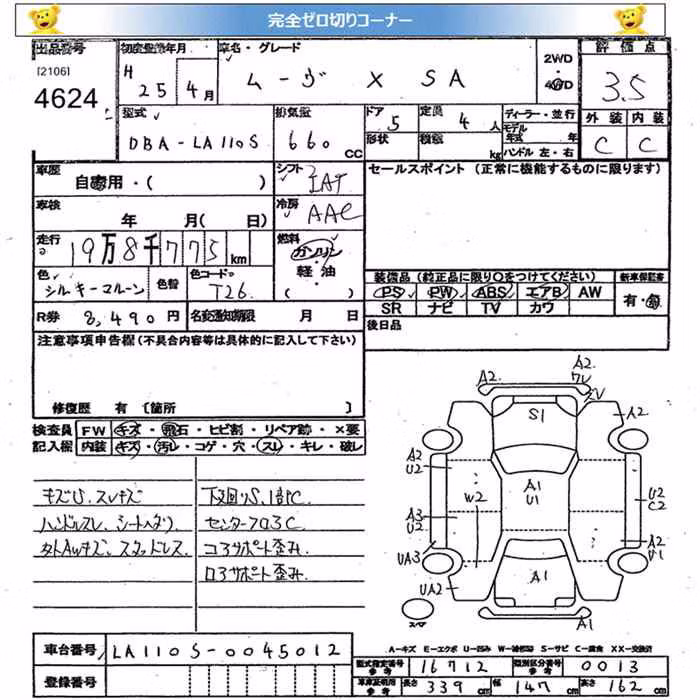 完全ゼロ切りコーナー
出品番号
[2106]
4624
初度登録年月
H 25年 4月
車名・グレード
ムーヴ X SA
2WD
4WD
評価点
3.5
外装 内装
C C
型式
DBA-LA110S
排気量
660 cc
ドア 5
形状
定員 4人
積載 kg
ディーラー・並行
モデル年式 年
ハンドル 左・右
車歴
自家用・( )
シフト
IAT
セールスポイント (正常に機能するものに限ります)
車検
年 月( 日)
冷房
AAC
走行
19万8千775 km
燃料
ガソリン
軽油
( )
色
シルキーマルーン
色替
色コード
T26
装備品 (純正品に限り○をつけてください)
PS PW ABS エアB AW
SR ナビ TV カワ
新車保証書
有・無
R券 8,490円
名変通知期限 月 日
後日品
注意事項申告欄 (不具合内容等は具体的に記入して下さい)
修復歴 有 [箇所 ]
検査員記入欄
FW キズ・飛石・ヒビ割・リペア跡・×要
内装 キズ・汚レ・コゲ・穴・スレ・キレ・破レ
キズU、スレキズ
ハンドルスレ、シートヘタリ
タトAWキズ、スタッドレス
下回りS、1部C
センターフロアC
コアサポート歪み
ロアサポート歪み
A2
A2
フU
U
A2
S1
A2
U2
A1
U1
W2
U2
C2
A3
U2
A2
U1
UA3
A1
UA2
スペア
A1
A-キズ E-エクボ U-凹み W-補修跡 S-サビ C-腐食 XX-交換済
車台番号 LA110S-0045012
登録番号
型式指定番号 参考 16712
類別区分番号 0013
車庫証明用 参考 長さ 339 cm 幅 147 cm 高さ 162 cm